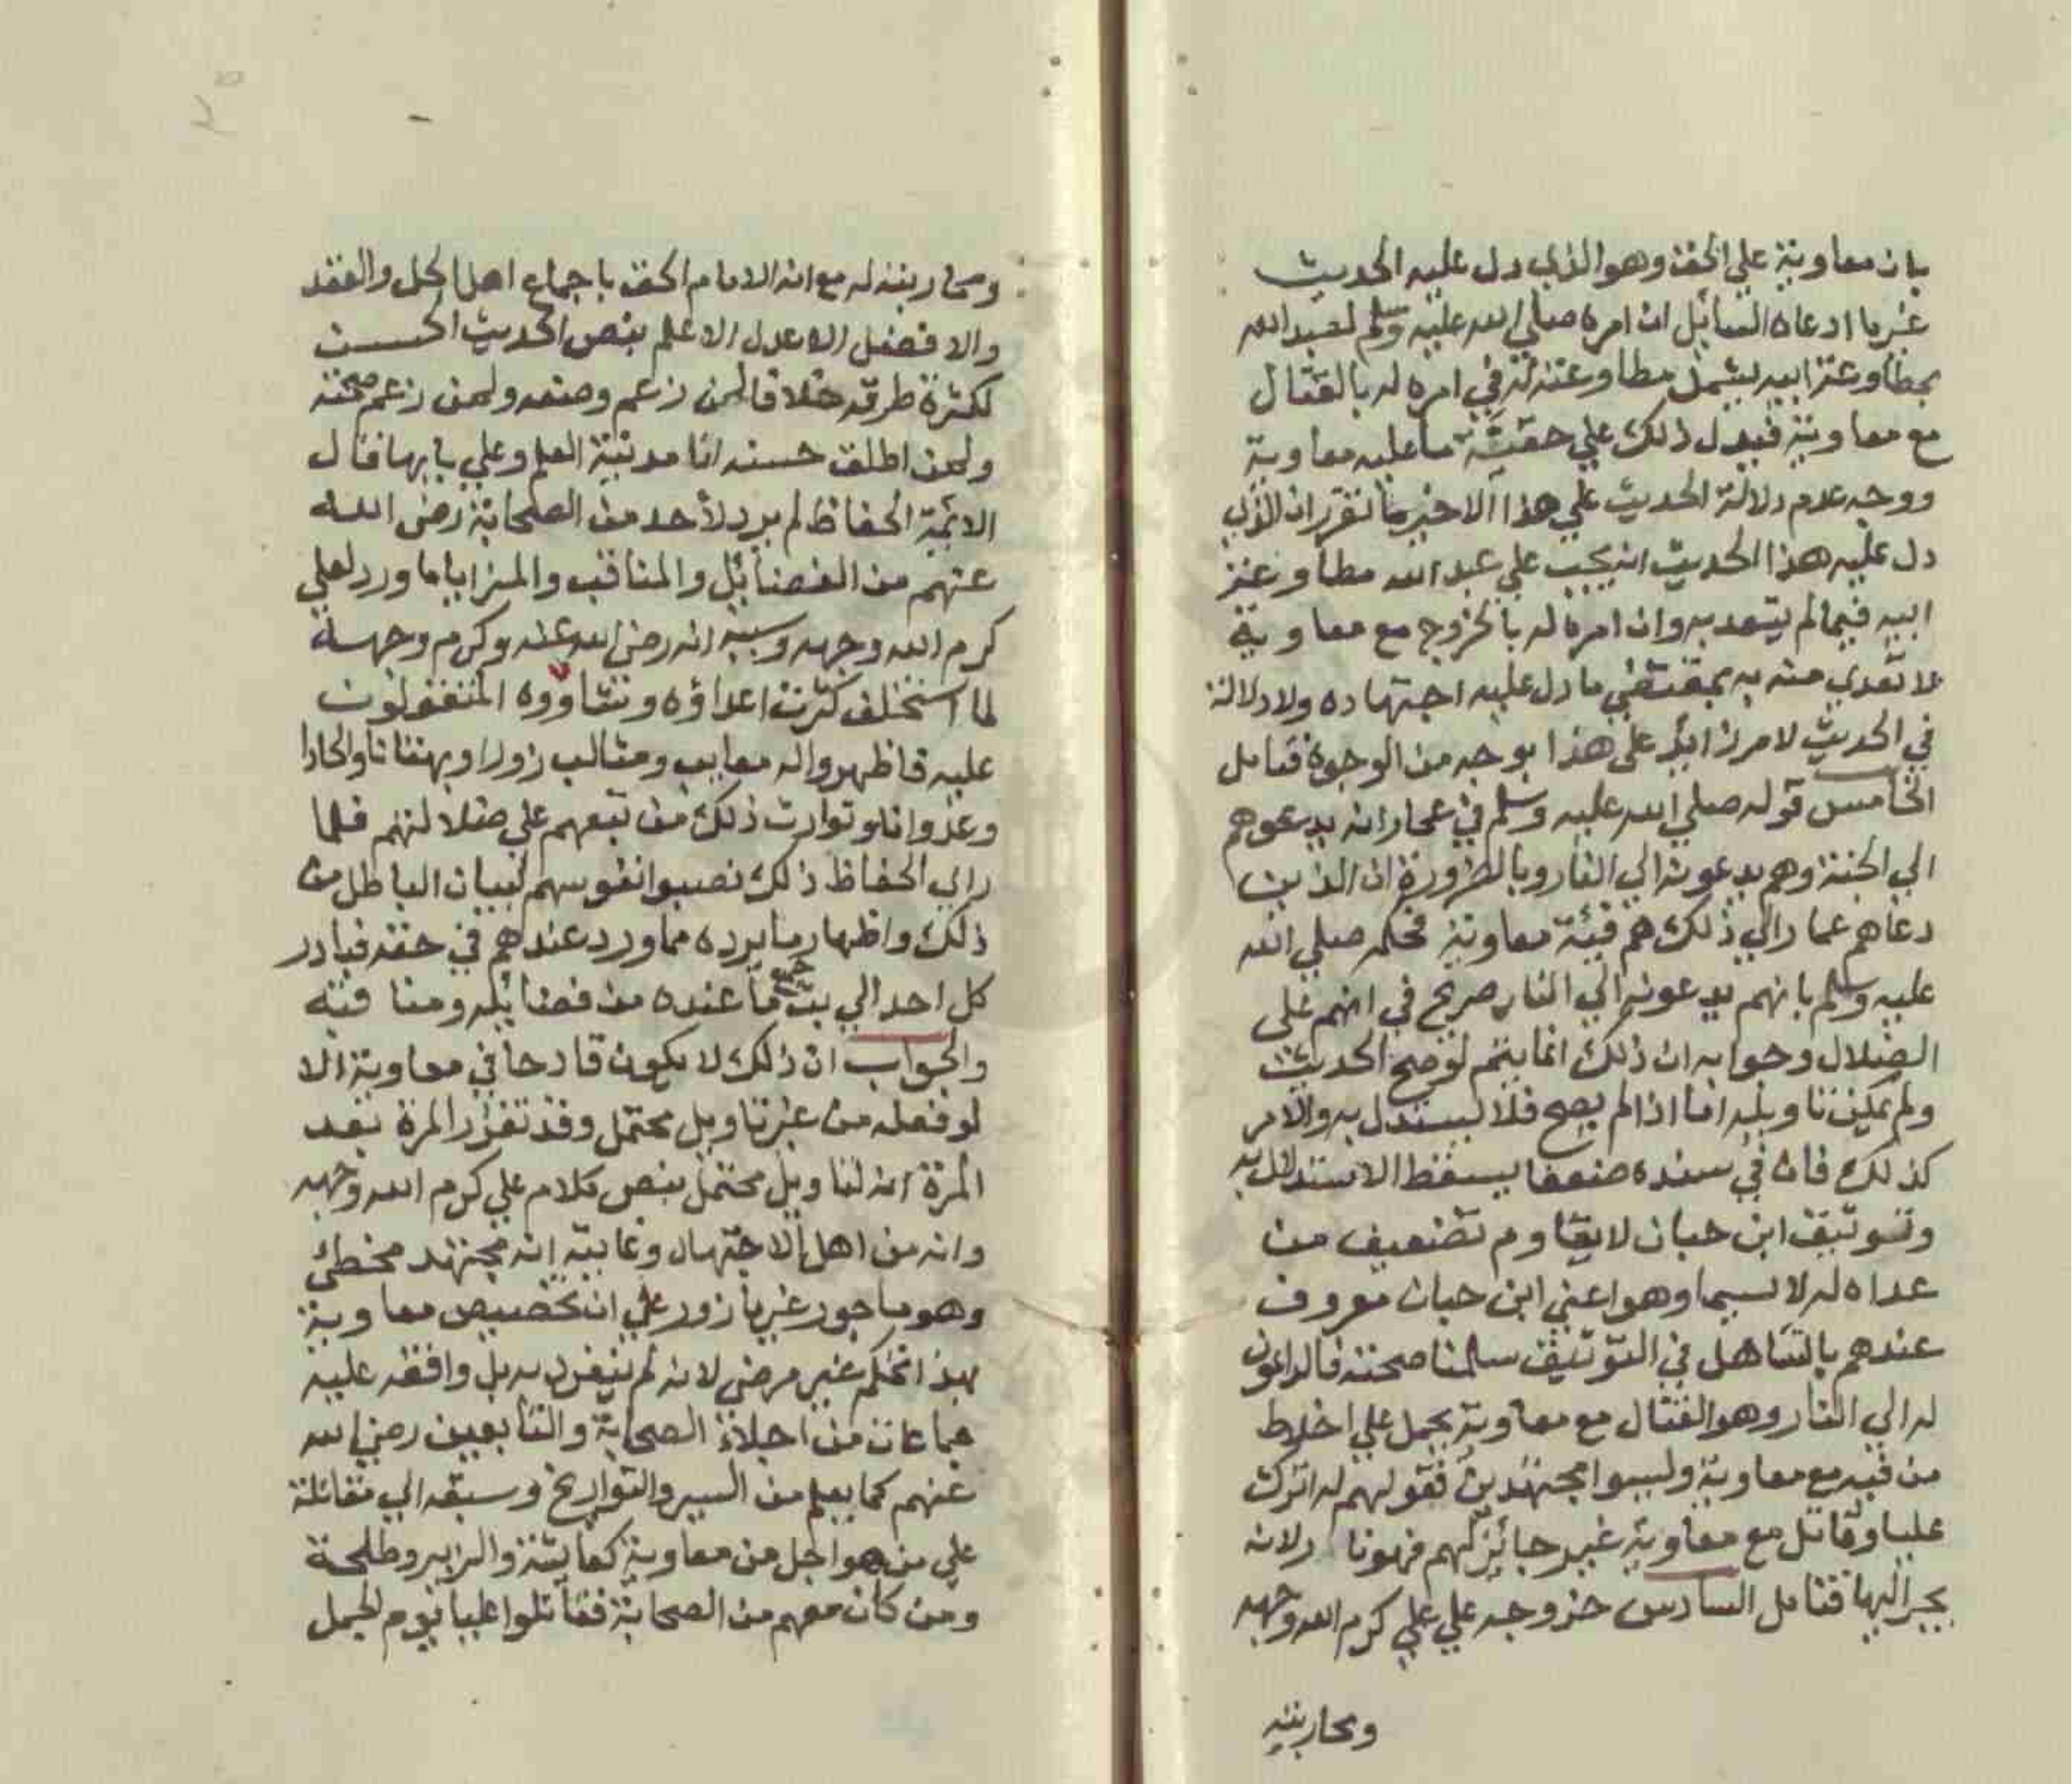 بان معاوية علي الحق وهو الذي دل عليه الحديث
غير ما ادعاه السائل ان امره صلي الله عليه وسلم لعبد الله
بمطاوعة ابيه يشمل مطاوعته له في امره له بالقتال
مع معاوية فيدل ذلك علي حقية ما عليه معاوية
ووجه عدم دلالة الحديث علي هذا الاخير ما تقرر ان الذي
دل عليه هذا الحديث انه يجب علي عبد الله مطاوعة
ابيه فيما لم يتعد به وان امره له بالخروج مع معاوية
لا تعدي منه به بمقتضي ما دل عليه اجتهاده ولا دلالة
في الحديث لامر زائد علي هذا بوجه من الوجوه فتامل
الخامس قوله صلي الله عليه وسلم في عمار انه يدعوهم
الي الجنة وهم يدعونه الي النار وبالضرورة ان الذين
دعاهم عمار الي ذلك هم فئة معاوية فحكمه صلي الله
عليه وسلم بانهم يدعونه الي النار صريح في انهم علي
الضلال وجوابه ان ذلك انما يتم لو صح الحديث
ولم يمكن تاويله اما اذا لم يصح فلا يستدل به والامر
كذلك فان في سنده ضعفا يسقط الاستدلال به
وتوثيق ابن حبان لا يقاوم تضعيف من
عداه له لا سيما وهو اعني ابن حبان معروف
عندهم بالتساهل في التوثيق سلمنا صحته فالداعون
له الي النار وهو القتال مع معاوية يحمل علي اخلاط
من فيه مع معاوية وليسوا مجتهدين فقولهم له اترك
عليا وقاتل مع معاوية غير جائز لهم فهو نار لانه
يجر اليها فتامل السادس خروجه علي علي كرم الله وجهه
ومحاربته
ومحاربته له مع انه الامام الحق باجماع اهل الحل والعقد
والافضل الاعدل الاعلم بنص الحديث الحسن
لكثرة طرقه خلافا لمن زعم وضعه ولمن زعم صحته
ولمن اطلق حسنه انا مدينة العلم وعلي بابها قال
الائمة الحفاظ لم يرد لأحد من الصحابة رضي الله
عنهم من الفضائل والمناقب والمزايا ما ورد لعلي
كرم الله وجهه وسببه انه رضي الله عنه وكرم وجهه
لما استخلف كثرت اعداؤه و المتقولون
عليه فاظهروا له معايب ومثالب زورا وبهتانا والحادا
وعدوانا وتوارث ذلك من تبعهم علي ضلالتهم فلما
راي الحفاظ ذلك نصبوا نفوسهم لبيان الباطل من
ذلك واظهار ما يرده مما ورد عندهم في حقه فبادر
كل احد الي بث جميع ما عنده من فضائله ومناقبه
والجواب ان ذلك لا يكون قادحا في معاوية الا
لو فعله من غير تاويل محتمل وقد تقرر المرة بعد
المرة انه لتاويل محتمل بنص كلام علي كرم الله وجهه
وانه من اهل الاجتهاد وغايته انه مجتهد مخطئ
وهو ماجور غير مازور علي ان تخصيص معاوية
بهذا التحكم غير مرضي لانه لم ينفرد به بل وافقه عليه
جماعات من اجلاء الصحابة والتابعين رضي الله
عنهم كما يعلم من السير والتواريخ وسبقه الي مقاتلة
علي من هو اجل من معاوية كعائشة والزبير وطلحة
ومن كان معهم من الصحابة فقاتلوا عليا يوم الجمل